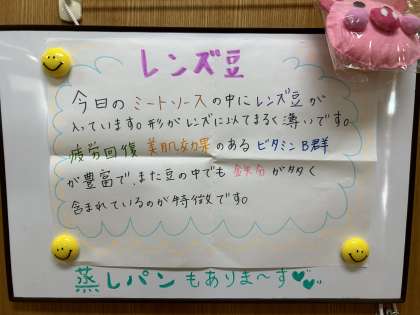 レンズ豆
今日のミートソースの中にレンズ豆が
入っています。形がレンズに似てまるく薄いです。
疲労回復 美肌効果のあるビタミンB群
が豊富で、また豆の中でも鉄分が多く
含まれているのが特徴です。
蒸しパンもありま〜す♥♥